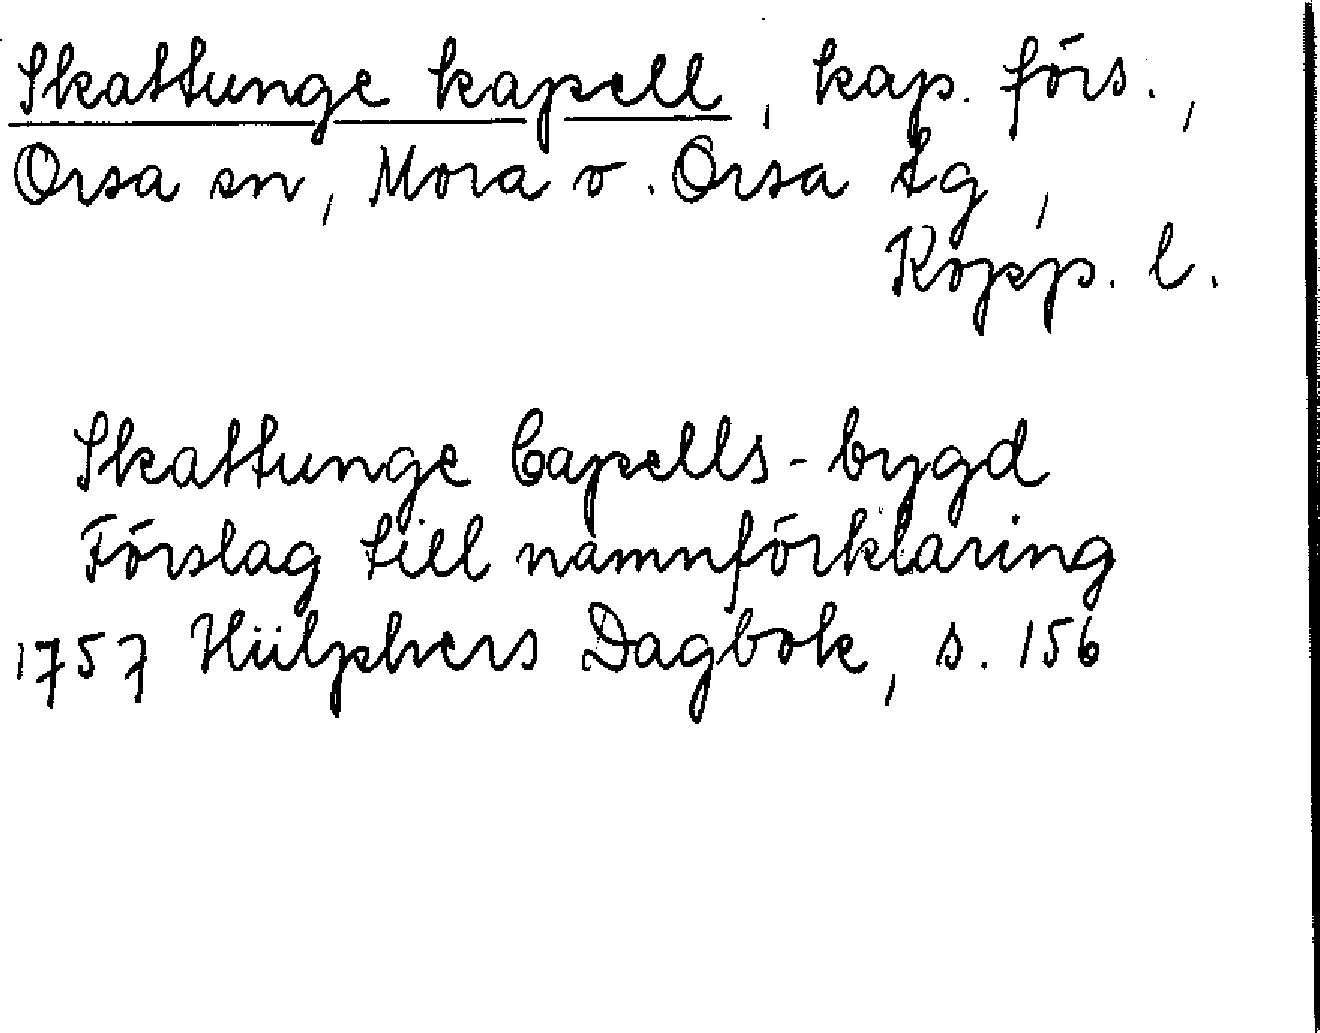 Skattunge kapell, kap. förs.,
Orsa sn, Mora o. Orsa tg,
Kopp. l.
Skattunge Capells-bygd
Förslag till namnförklaring
1757 Hülphers Dagbok, s. 156